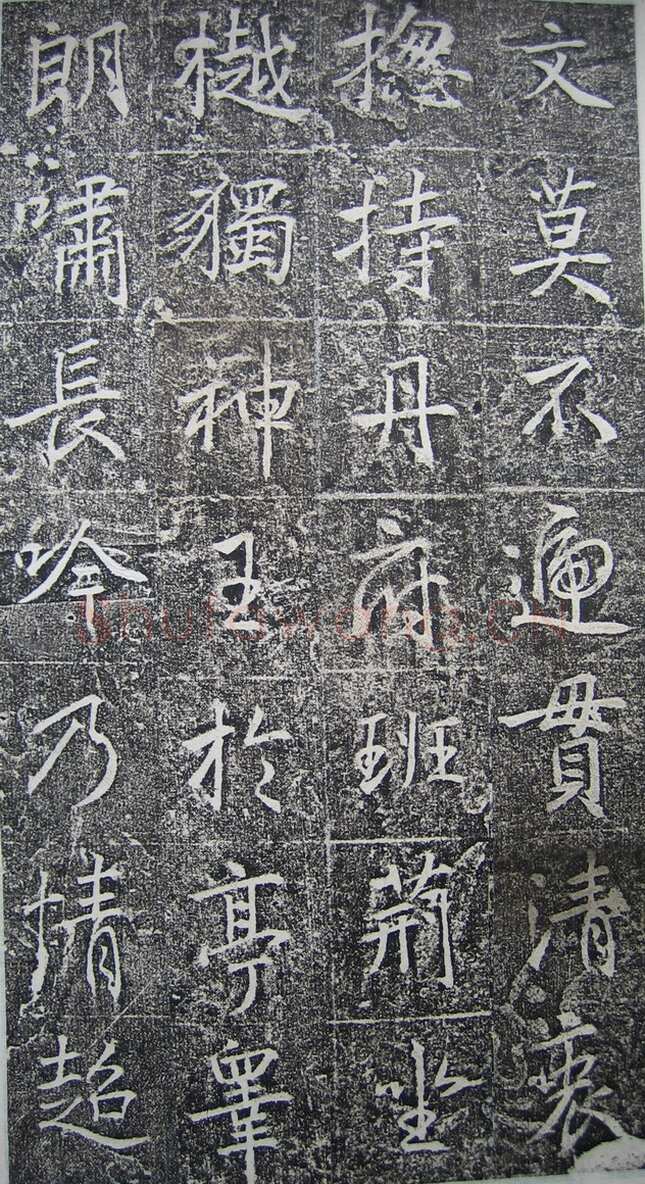 文莫不遍貫清衷
撫持丹府班荊坐
樾獨神王於亭皋
朗嘯長吟乃情超
shufawang.CN